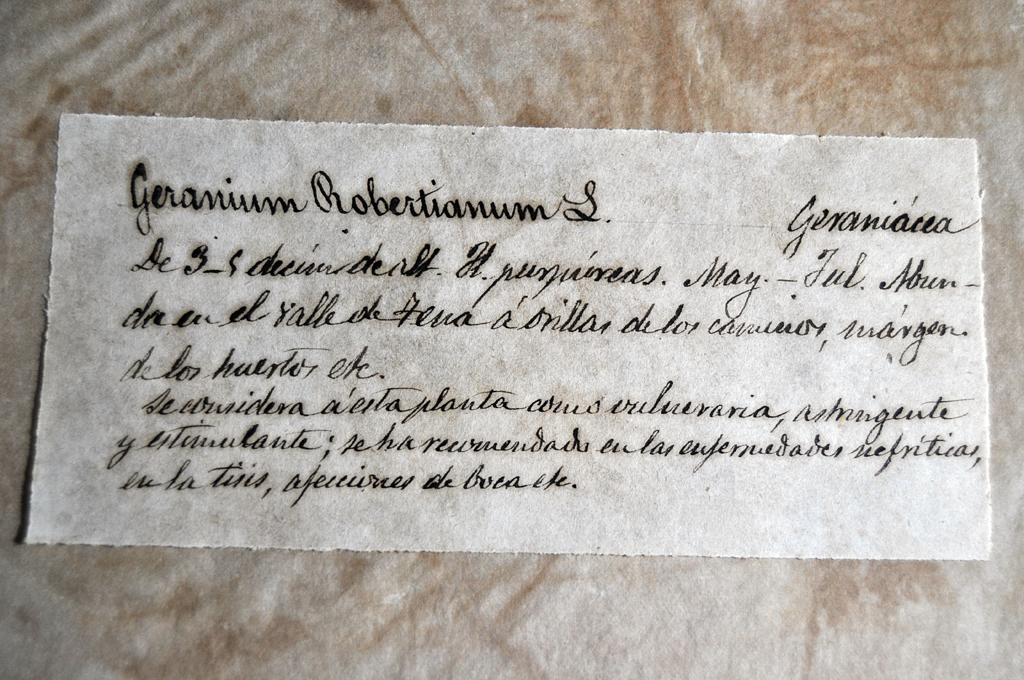 Geranium Robertianum L.
Geraniácea
De 3-5 decím de alt. Fl. purpúreas. May. - Jul. Abun-
da en el valle de Tena á orillas de los caminos, márgen.
de los huertos etc.
Se considera á esta planta como vulneraria, astringente
y estimulante; se ha recomendado en las enfermedades nefríticas,
en la tisis, afecciones de boca etc.